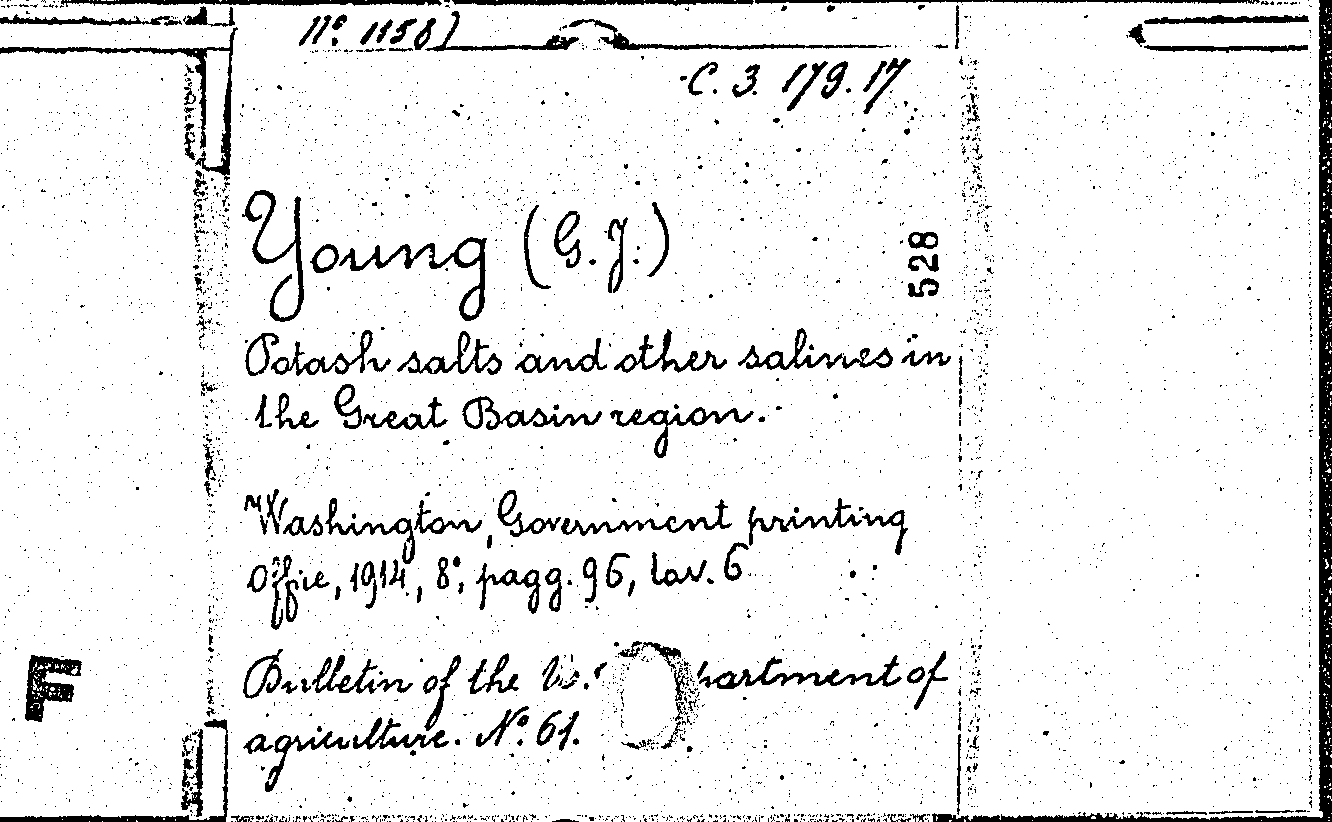 N.° 11587
C. 3. 179. 17
Young (G. J.)
528
Potash salts and other salines in
the Great Basin region.
Washington, Government printing
Office, 1914, 8°, pagg. 96, tav. 6
Bulletin of the
of
agriculture. N.° 61.
F